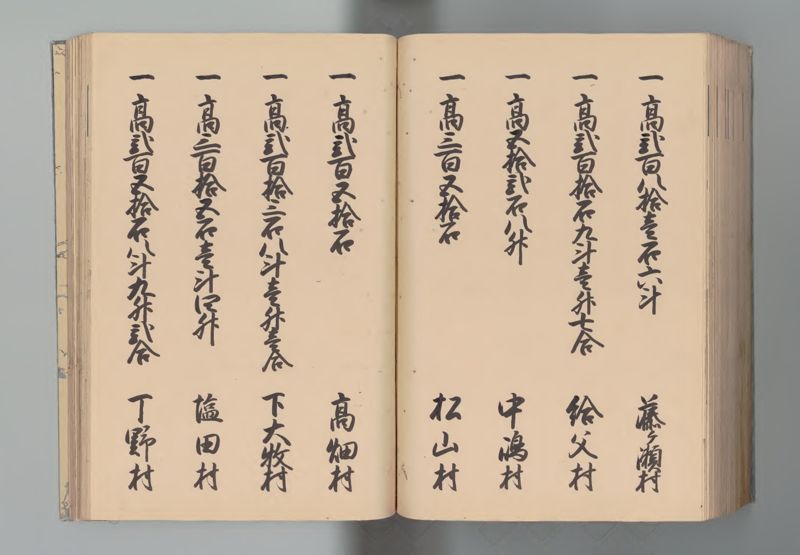 一高弐百八拾壱石六斗 藤ヶ瀬村
一高弐百拾石九斗壱升七合 給父村
一高五拾弐石八升 中嶋村
一高三百五拾石 松山村
一高弐百五拾石 高畑村
一高弐百拾三石八斗壱升壱合 下大牧村
一高三百拾五石壱斗四升 塩田村
一高弐百五拾石八斗九升弐合 丁野村